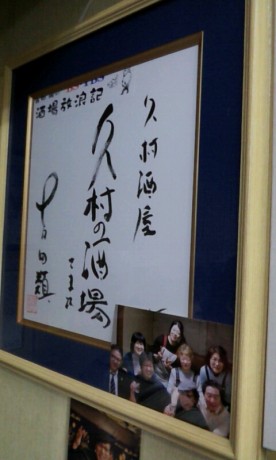 酒場放浪記
久村酒屋
久村の酒場
さま江
吉田類